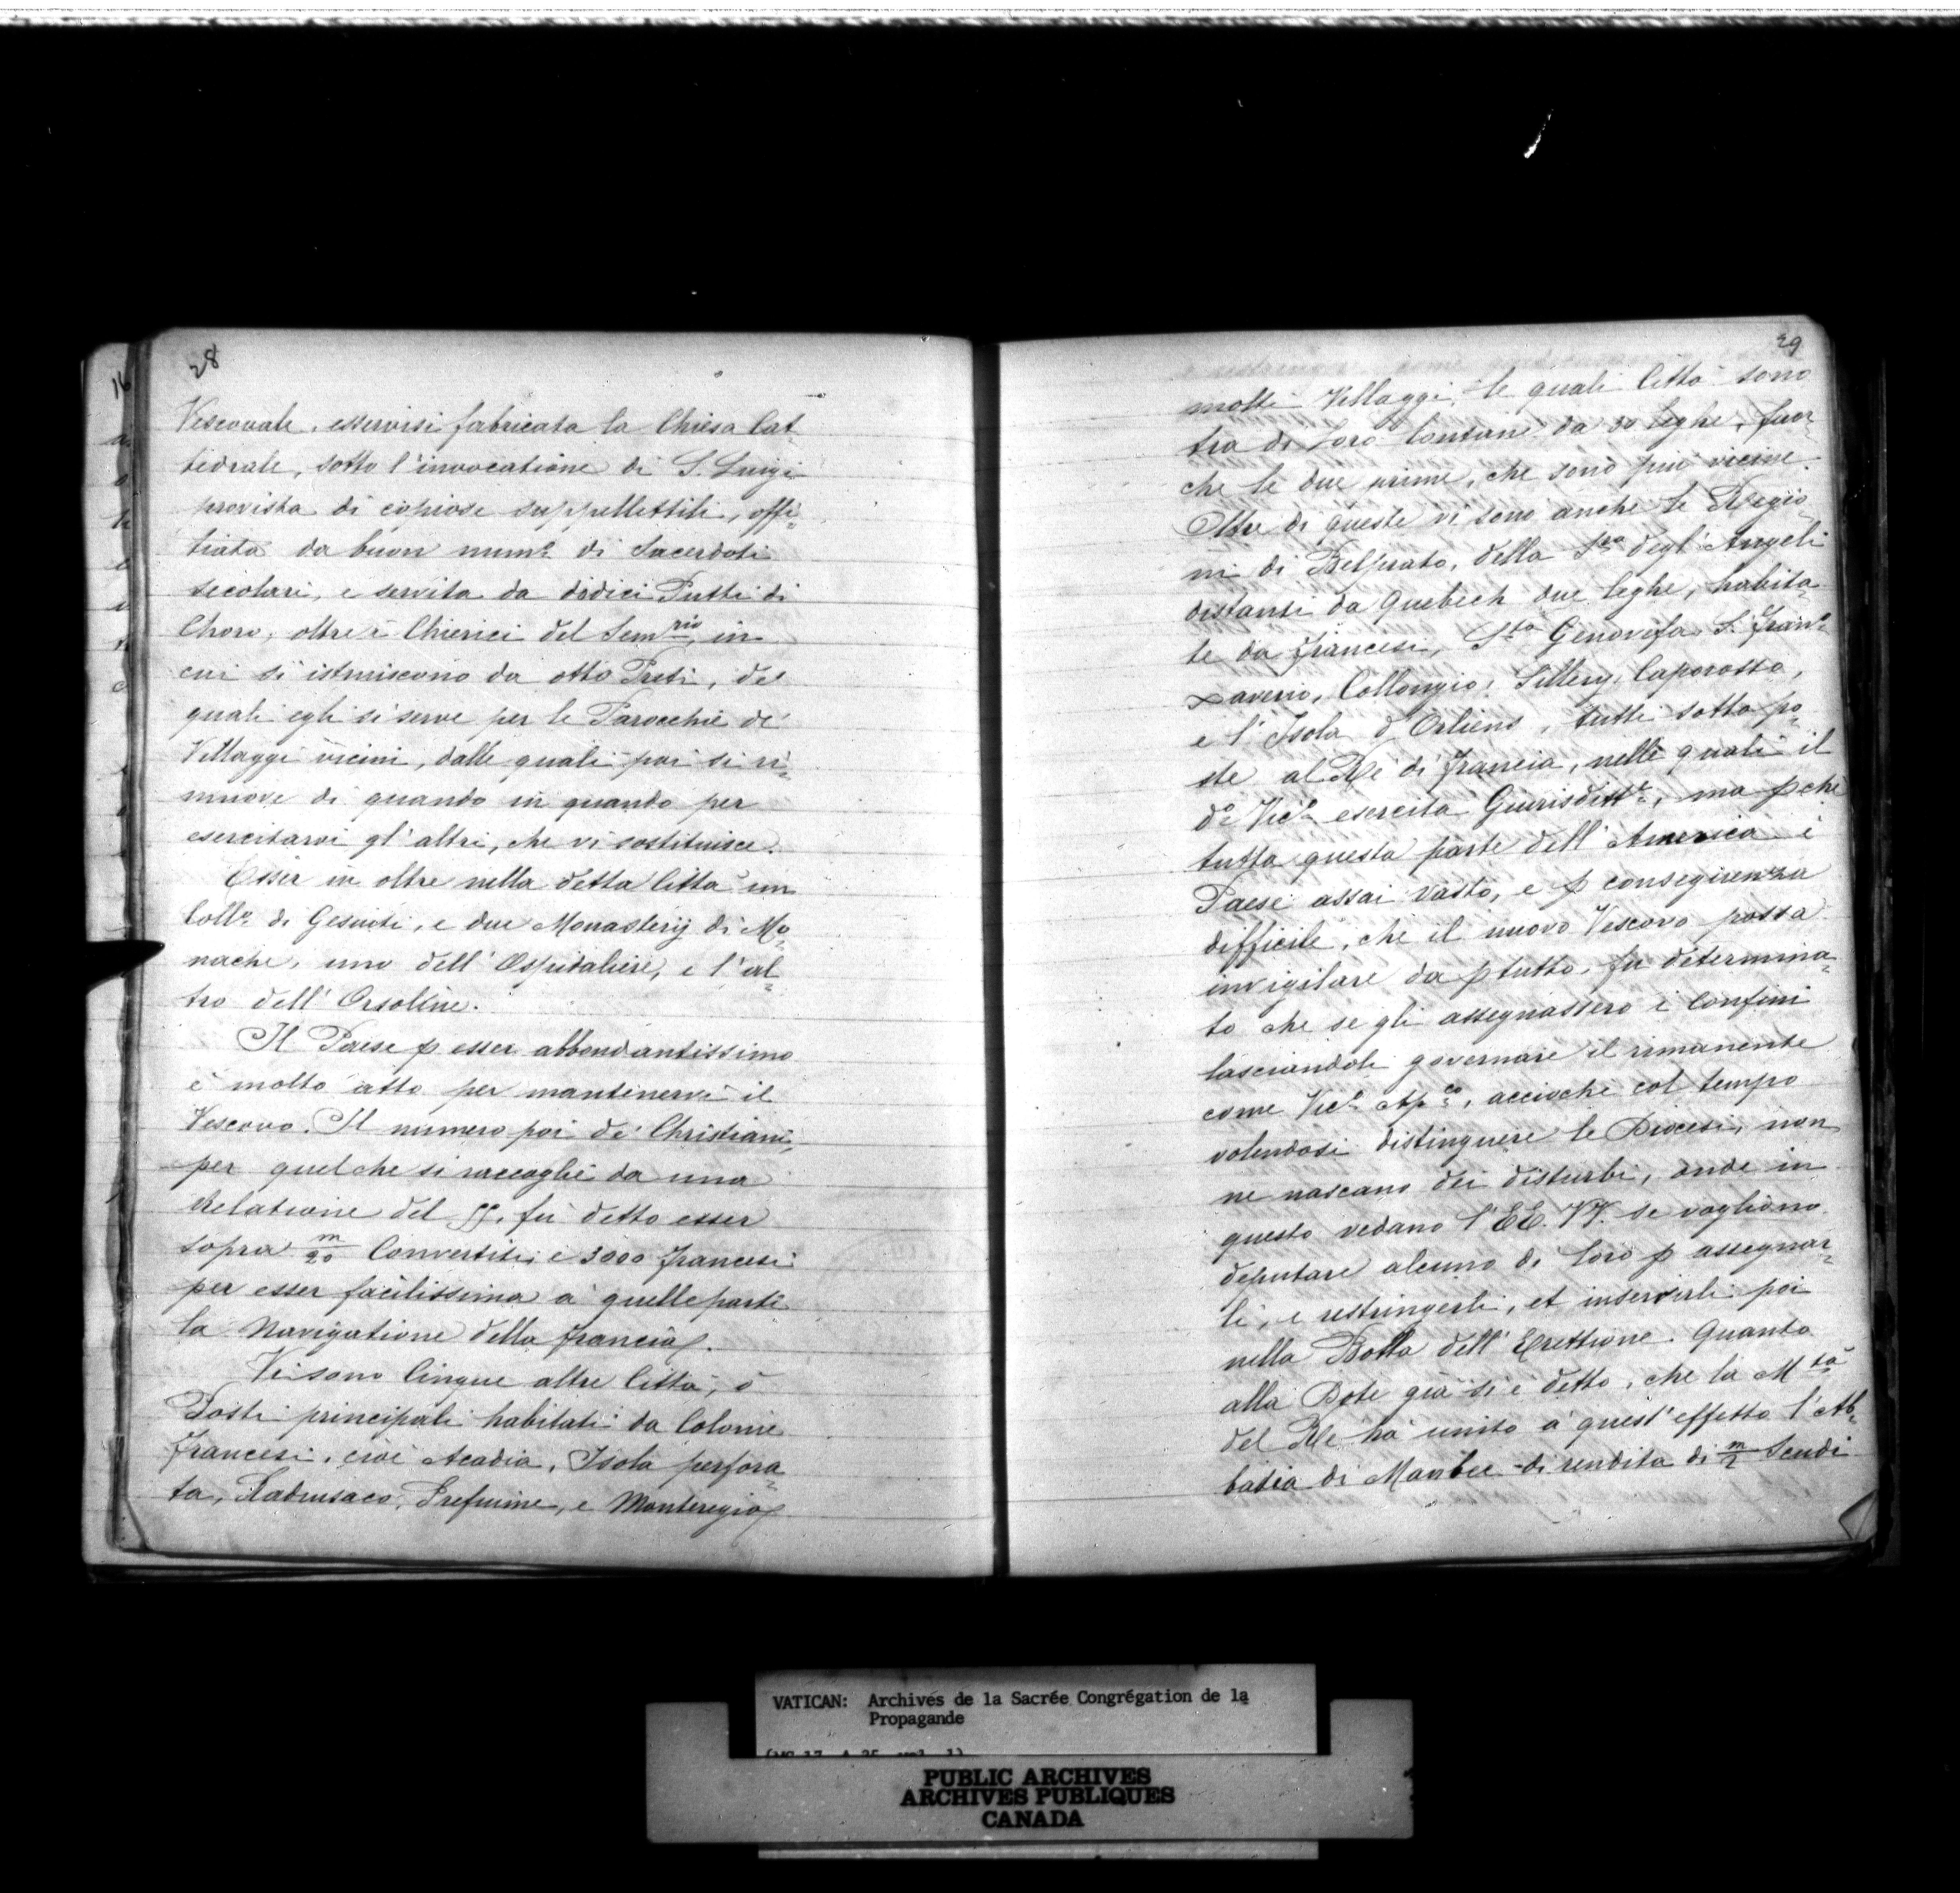 28
Vescovale, esservisi fabricata la Chiesa Cat=
tedrale, sotto l'invocatione di S. Luigi
provista di copiose suppellettili, offi=
tiata da buon num.º di Sacerdoti
secolari, e servita da dodici Putti di
Choro, oltre i Chierici del Sem.rio, in
cui si istruiscono da otto Preti, de'
quali egli si serve per le Parocchie de'
Villaggi vicini, dalle quali poi si ri=
muove di quando in quando per
esercitarvi gl'altri, che vi sostituisce.
Esser in oltre nella detta Città un
Coll.º di Gesuiti, e due Monasterij di Mo=
nache, uno dell'Ospitaliere, e l'al=
tro dell'Orsoline.
Il Paese p esser abbondantissimo
è molto atto per mantenervi il
Vescovo. Il numero poi de' Christiani,
per quel che si raccoglie da una
Relatione del ff. fu detto esser
sopra m/20 Convertiti, e 3000 francesi
per esser facilissima a quelle parti
la Navigatione della francia.
Vi sono Cinque altre Città, ò
Posti principali habitati da Colonie
francesi, cioè Acadia, Isola perfora=
ta, Tadusaco, Trefiume, e Monteregio
29
molti Villaggi, le quali Città sono
tra di loro lontane da 30 leghe, fuor=
che le due prime, che sono più vicine.
Oltre di queste vi sono anche le Regio=
ni di Belprato, della Sra degl'Angeli
distanti da Quebech due leghe, habita=
te da francesi, Sta Genovefa, S. Fran.º
Xaverio, Collongio, Sillery, Caporosso,
e l'Isola d'Orliens, tutti sotto po=
ste al Rè di francia, nelle quali il
dº Vicº esercita Giurisditt.e, ma pchè
tutta questa parte dell'America è
Paese assai vasto, e p conseguenza
difficile, che il nuovo Vescovo possa
invigilare da p tutto, fu determina=
to che se gli assegnassero i Confini
lasciandoli governare il rimanente
come Vicº Ap.co, acciochè col tempo
volendosi distinguere le Diocesi, non
ne nascano dei disturbi, onde in
questo vedano l'EE. VV. se vogliono
deputare alcuno di loro p assegnar=
li, e restringerli, et inserirli poi
nella Bolla dell'Erettione. Quanto
alla Dote già si è detto, che la M.tà
del Rè hà unito à quest'effetto l'Ab=
badia di Maubec di rendita di m/2 Scudi
VATICAN: Archives de la Sacrée Congrégation de la
Propagande
PUBLIC ARCHIVES
ARCHIVES PUBLIQUES
CANADA